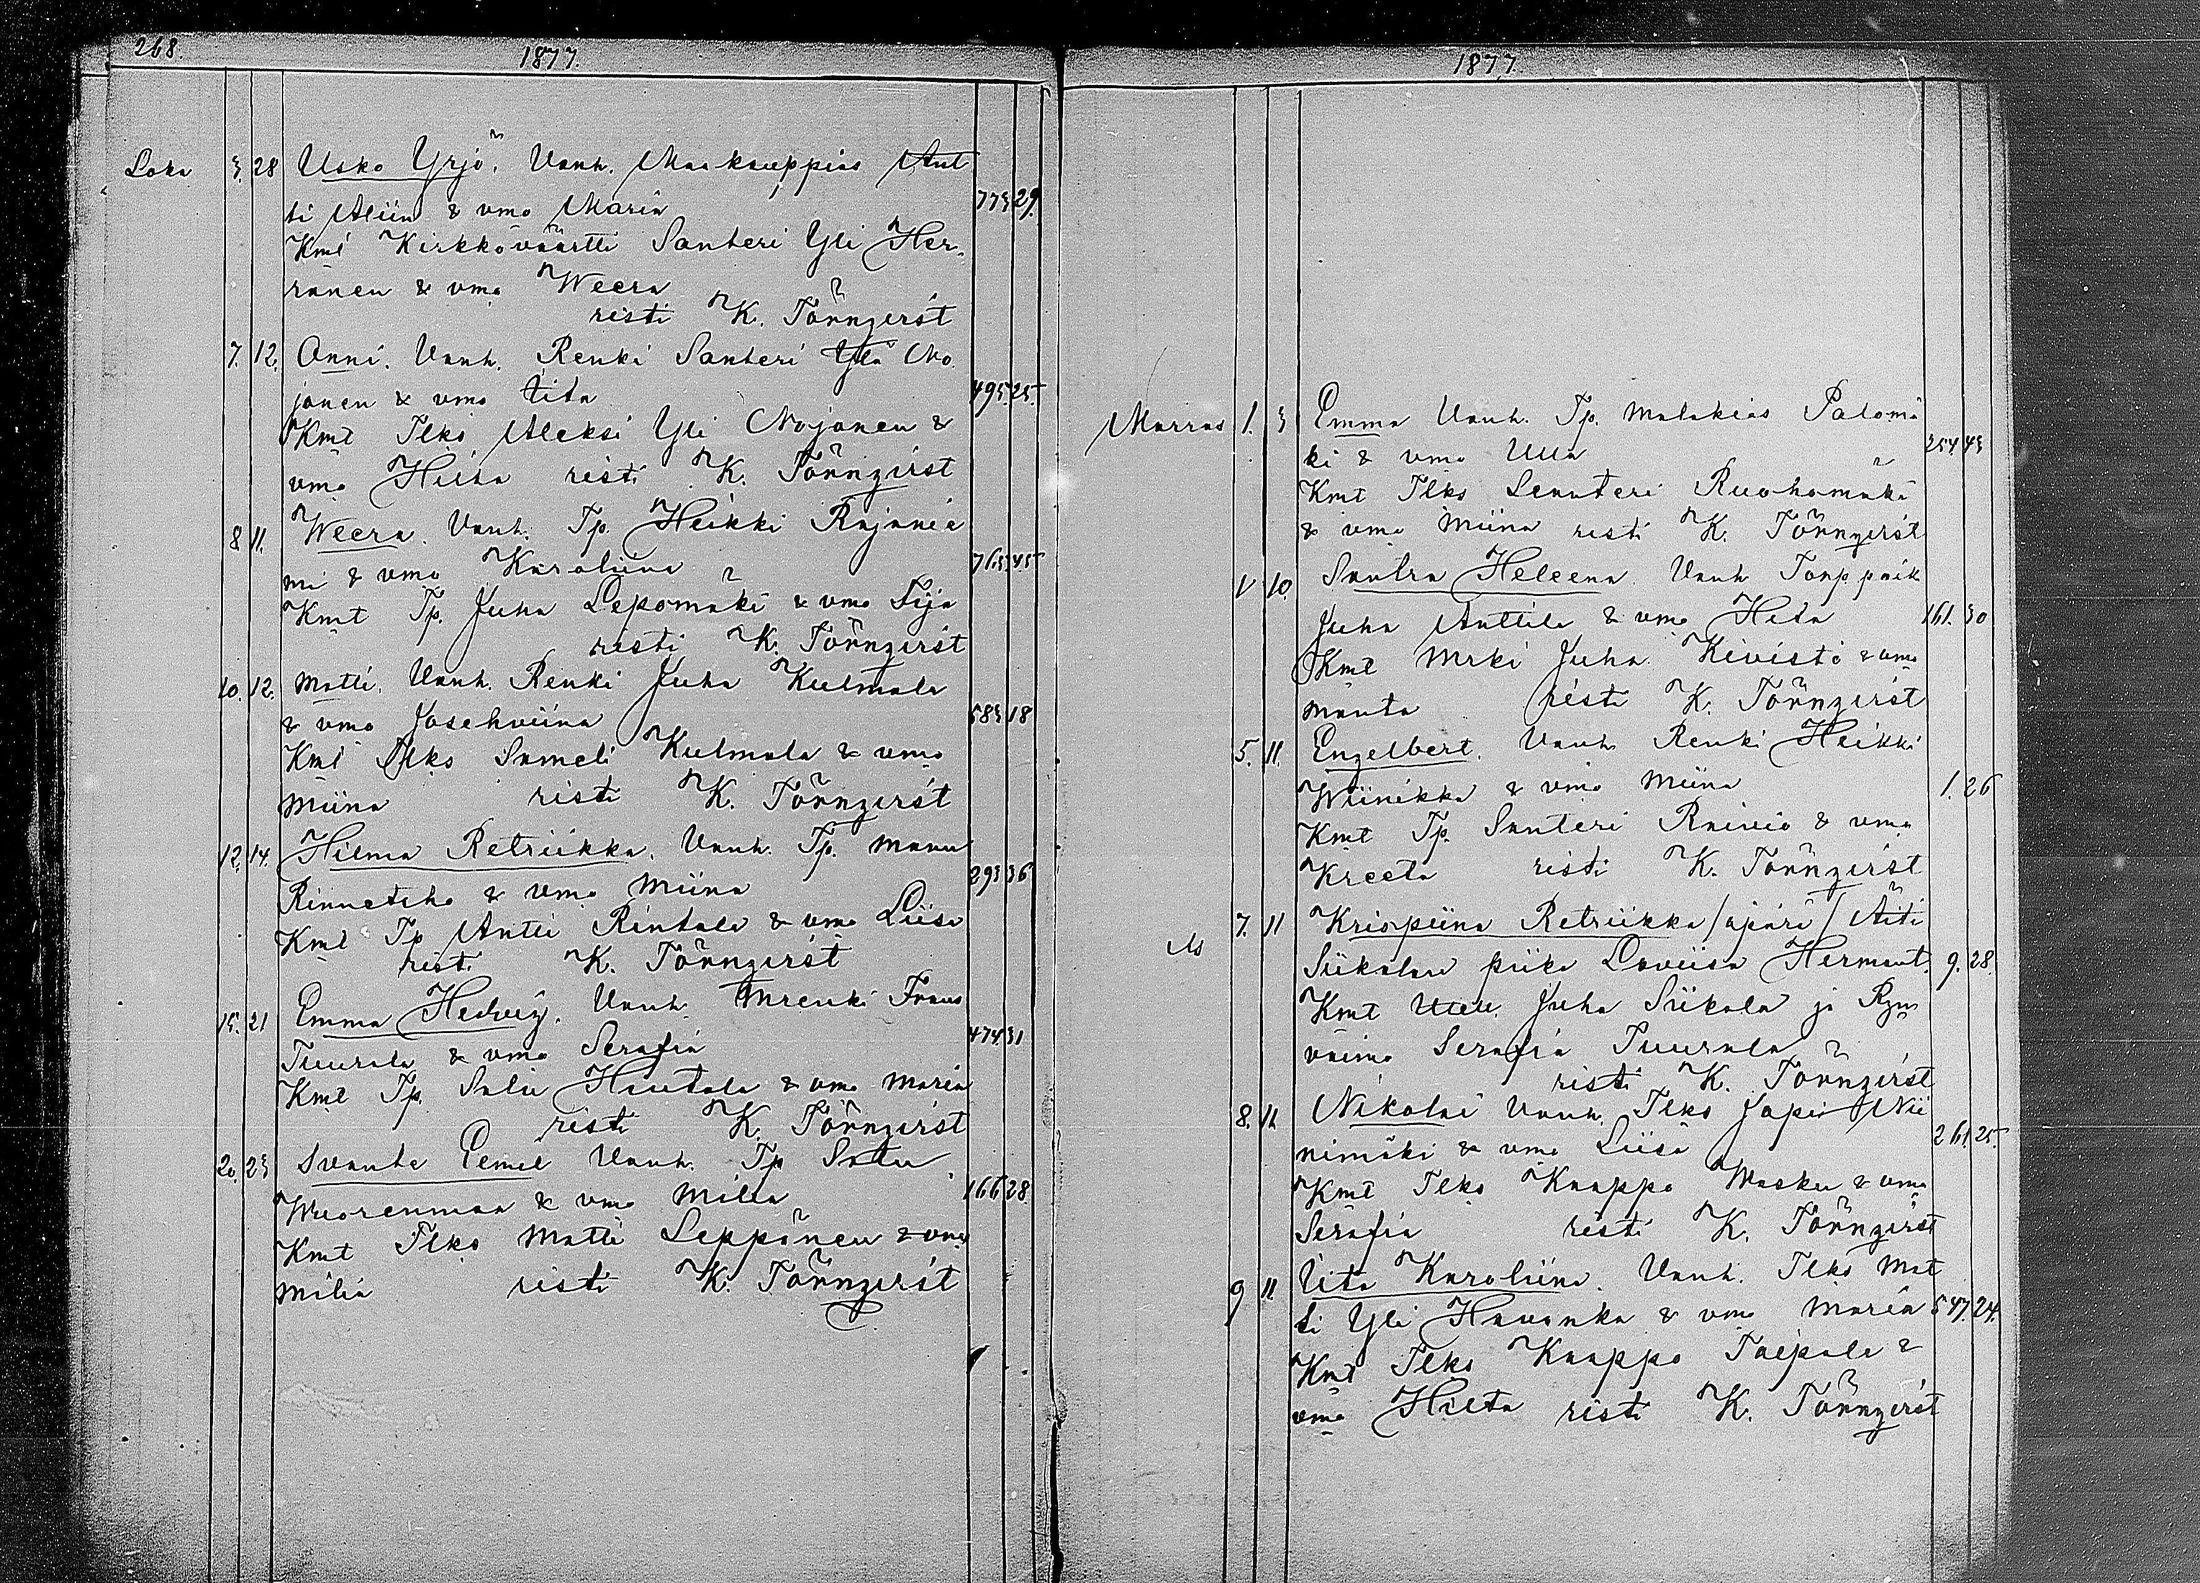 268.
1877.
Loka 3. 28 Usko Yrjö, Vanh. Maakauppias Ant
ti Aliin & vmo Maria 773 29.
Kmt Kirkkoväärtti Santeri Yli Her
ranen & vmo Weera
risti K. Törnqvist
7. 12. Onni. Vanh. Renki Santeri Ylä No
jonen & vmo Iita 495. 25.
Kmt Ilks Aleksi Yli Nojonen &
vmo Hilta risti K. Törnqvist
8 11. Weera. Vanh. Tp. Heikki Rajanie
mi & vmo Karoliina 763 45
Kmt Tp. Juha Lepomäki & vmo Fija
risti K. Törnqvist
10. 12. Matti. Vanh. Renki Juha Kulmala
& vmo Josehviina 583 18
Kmt Ilks Sameli Kulmala & vmo
Miina risti K. Törnqvist
12. 14. Hilma Retriikka. Vanh. Tp. Manu
Rinnetsho & vmo Miina 293 36
Kmt Tp Antti Rintala & vmo Liisa
risti K. Törnqvist
15. 21 Emma Hedvig. Vanh. Mrenki Frans
Tuurala & vmo Serafia 474. 31
Kmt Tp. Salu Hautala & vmo Maria
risti K. Törnqvist
20. 23 Svante Eemel Vanh. Tp Salu
Wuorenmaa & vmo Milia 166 28.
Kmt Ilks Matti Leppänen & vmo
Milia risti K. Törnqvist
1877.
Marras 1. 3 Emma Vanh. Tp. Malakias Palomä
ki & vmo Ulla 254 43
Kmt Ilks Santeri Ruohomäki
& vmo Miina risti K. Törnqvist
1 10. Santra Heleena. Vanh Torppaik
Juha Anttila & vmo Heta 161. 30
Kmt Mrki Juha Kivistö & vmo
Manta risti K. Törnqvist
5. 11 Engelbert. Vanh Renki Heikki
Wiinikka & vmo Miina 1. 26
Kmt Tp. Santeri Raivio & vmo
Kreeta risti K. Törnqvist
7. 11 Krispiina Retriikka /äpärä/ Äiti
Siikalan piika Loviisa Hermant. 9. 28.
Kmt Juha Siikala ja
vaimo Serafia Tuurala
risti K. Törnqvist
8. 11 Nikolai Vanh. Ilks Japi Nii
nimäki & vmo Liisa 261. 25.
Kmt Ilks Kaappo Wasku & vmo
Serafia risti K. Törnqvist
9 11. Iita Karoliina. Vanh. Ilks Mat
ti Yli Hauanka & vmo Maria 547. 24.
Kmt Ilks Kaappo Taipale &
vmo Hilta risti K. Törnqvist